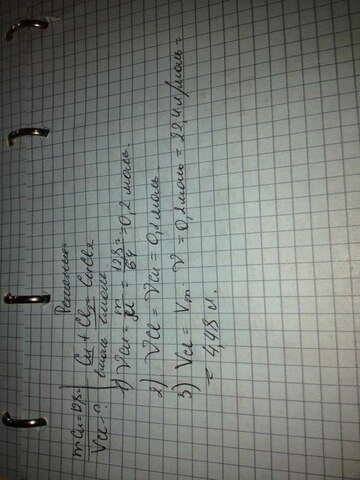 Решение
mCu = 12,8г
VCl - ?
Cu + Cl2 = CuCl2
1моль 1моль
1) νCu = m/M = 12,8г/64 = 0,2 моль
2) νCl = νCu = 0,2 моль
3) VCl = Vm ν = 0,2 моль = 22,4 л/моль =
= 4,48 л.